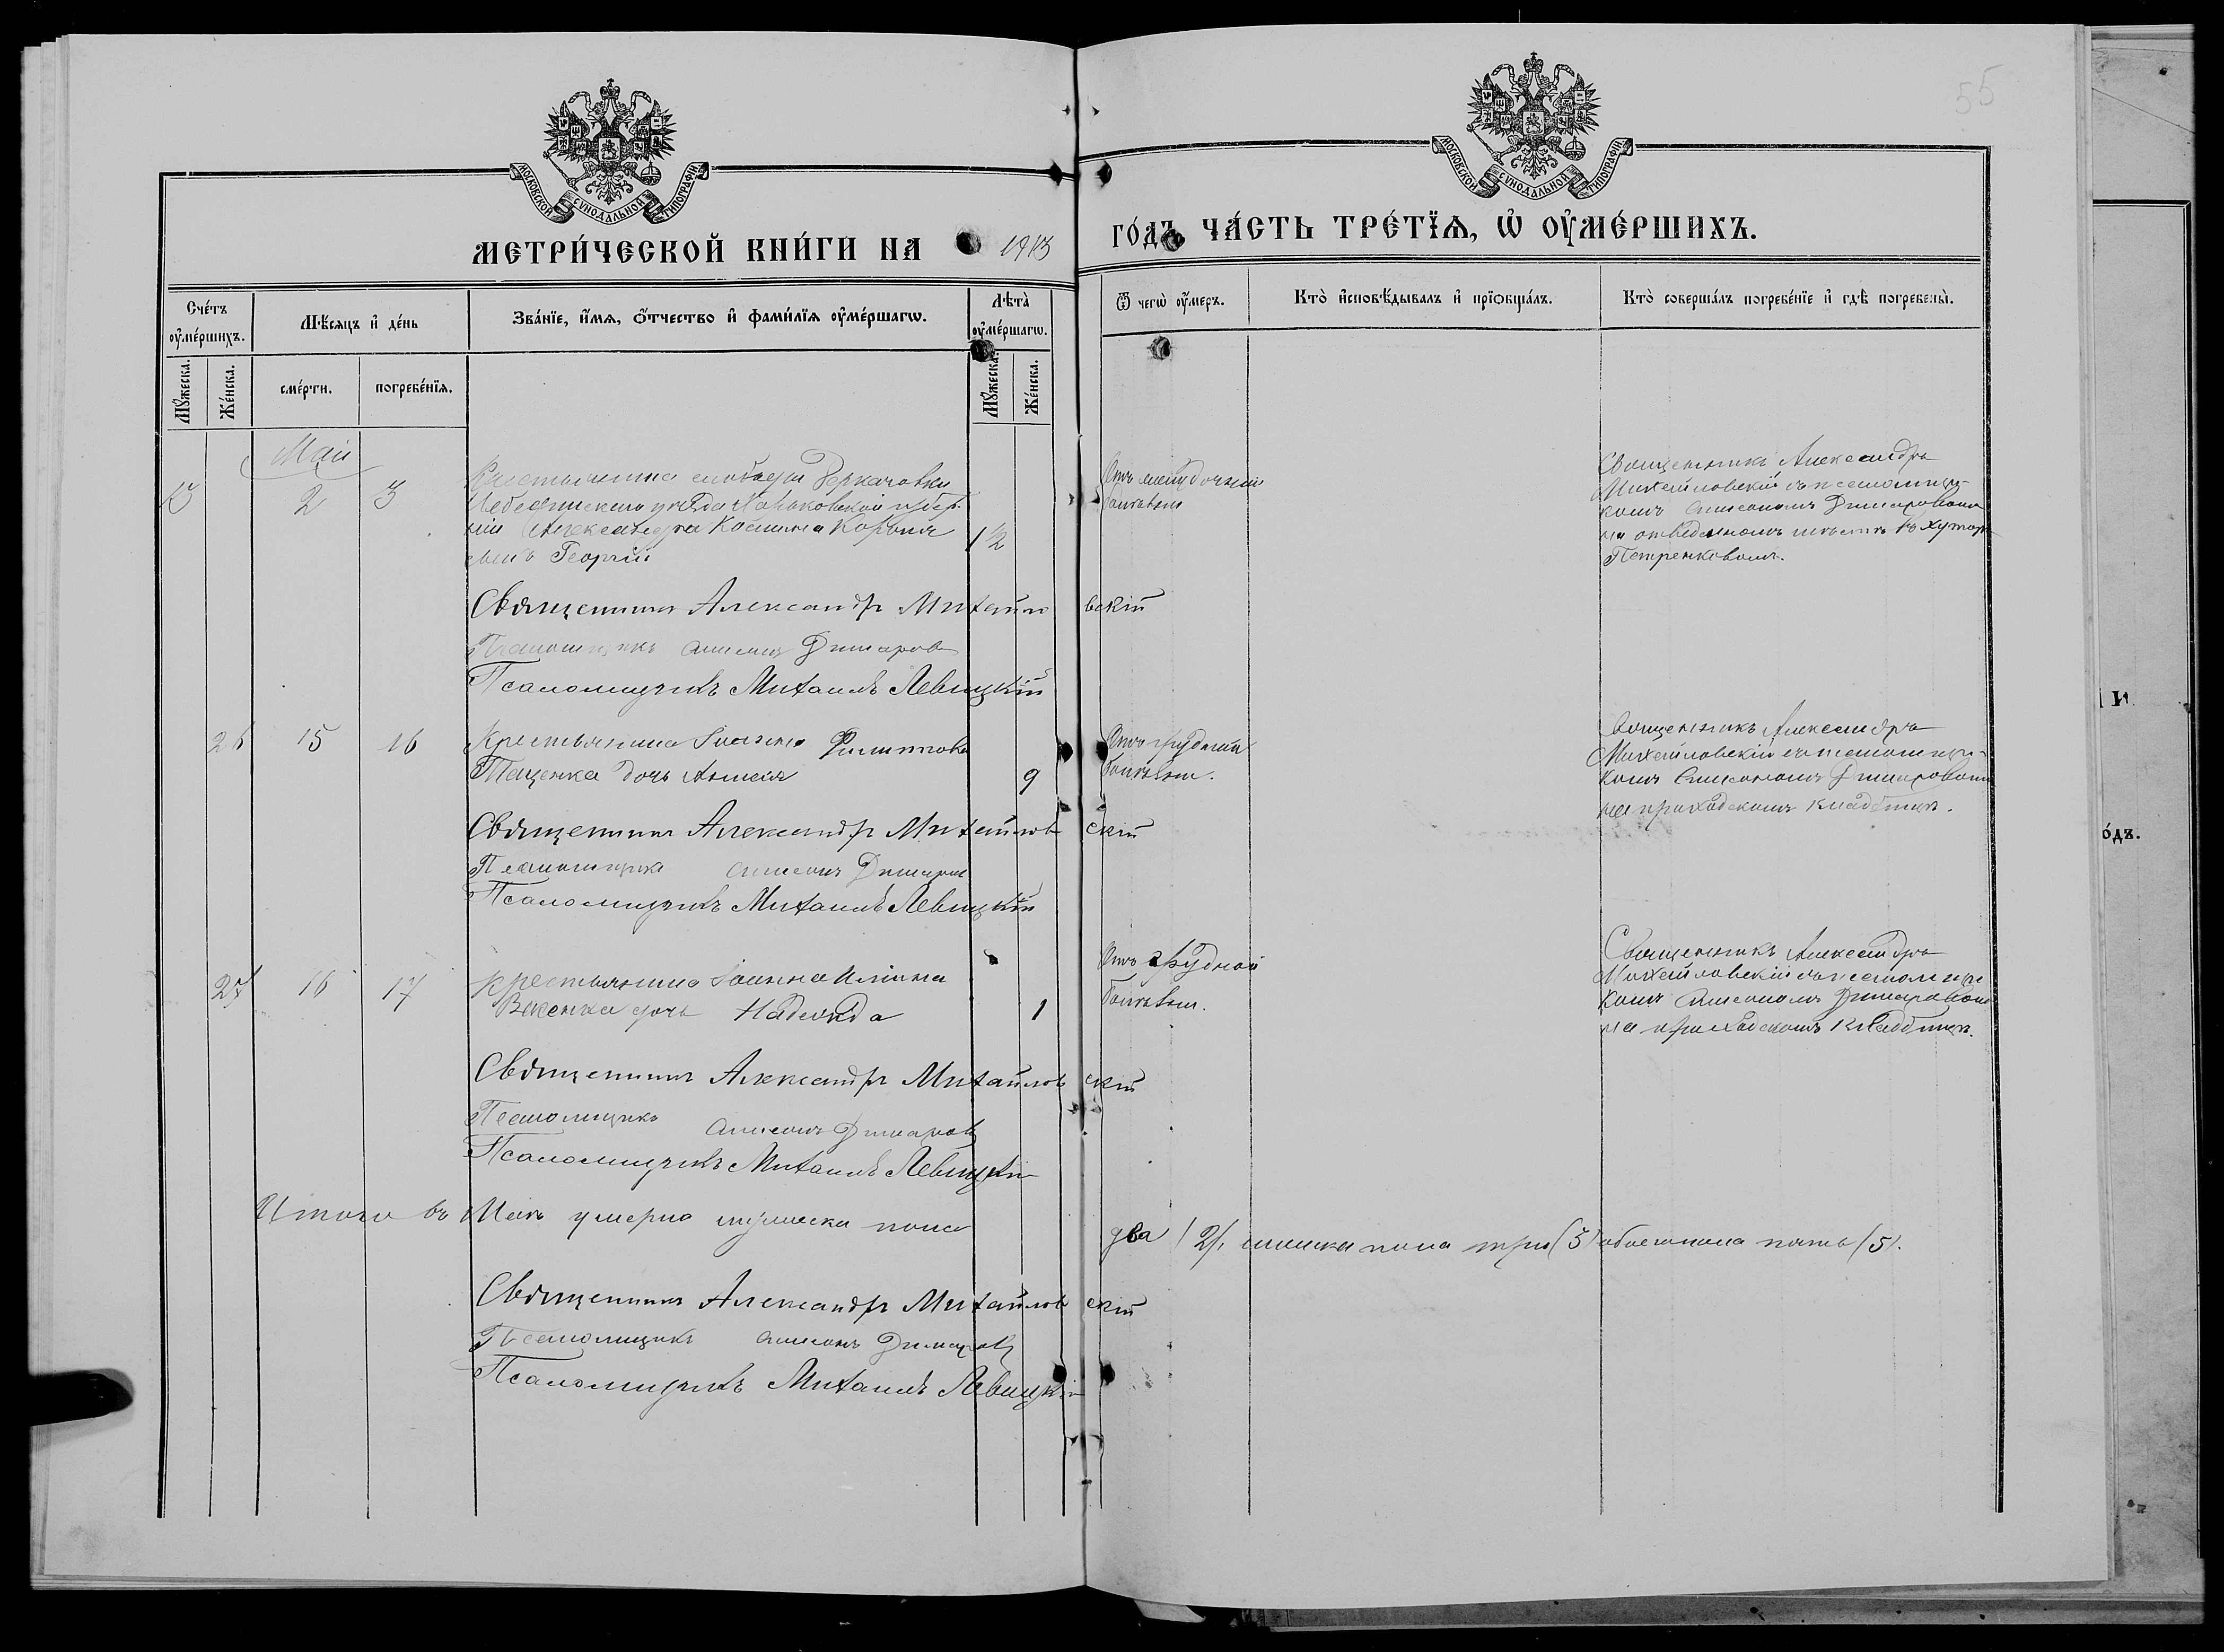 55
МОСКОВСКОЙ СѴНОДАЛЬНОЙ ТИПОГРАФІИ
МОСКОВСКОЙ СѴНОДАЛЬНОЙ ТИПОГРАФІИ
МЕТРИ́ЧЕСКОЙ КНИ́ГИ НА 1913 ГО́ДЪ ЧА́СТЬ ТРЕ́ТЇѦ, Ѡ҆ ОУ҆МЕ́РШИХЪ.
Сче́тъ оу҆ме́ршихъ.
Мꙋ́жеска.
Же́нска.
Мѣ́сѧцъ и҆ де́нь
сме́рти.
погребе́нїѧ.
Зва́нїе, и҆́мѧ, ѻ҆́тчество и҆ фами́лїѧ оу҆ме́ршагѡ.
Лѣ́та̀ оу҆ме́ршагѡ.
Мꙋ́жеска.
Же́нска.
Ѿ чегѡ̀ оу҆́меръ.
Кто̀ и҆сповѣ́дывалъ и҆ прїѻбща́лъ.
Кто̀ соверша́лъ погребе́нїе и҆ гдѣ̀ погребены̀.
Май
2 3
Крестьянина слободы Деркачовки
Лебединскаго уѣзда Харьковской губер-
ніи Александра Космина Короля
сынъ Георгій
12
Отъ
болѣзни
Священникъ Александръ
Михайловскій съ псаломщи-
комъ Димаровымъ
на отведенномъ мѣстѣ въ хуторѣ
Петренковомъ.
Священникъ Александр Михайловскій
Псаломщикъ Димаровъ
Псаломщикъ Михаилъ Левицкій
26 15 16
Крестьянина Іоанна Филиппова
Таценка дочь
9
Отъ грудной
болѣзни.
Священникъ Александръ
Михайловскій съ псаломщи-
комъ Димаровымъ
на приходскомъ кладбищѣ.
Священникъ Александр Михайловскій
Псаломщикъ Димаровъ
Псаломщикъ Михаилъ Левицкій
27 16 17
Крестьянина Іоанна Иліина
дочь Надежда
1
Отъ грудной
болѣзни.
Священникъ Александръ
Михайловскій съ псаломщи
комъ Димаровымъ
на приходскомъ кладбищѣ.
Священникъ Александр Михайловскій
Псаломщикъ Димаровъ
Псаломщикъ Михаилъ Левицкій
Итого въ Маѣ умерло мужеска пола два (2), женска пола три (3) обоего пола пять (5).
Священникъ Александр Михайловскій
Псаломщикъ Димаровъ
Псаломщикъ Михаилъ Левицкій
И
о́дъ.